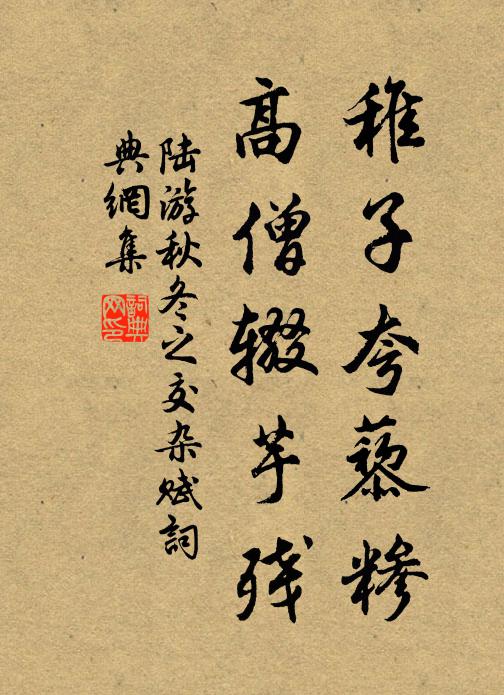 稚子夸藜糁
高僧辍芋残
陆游秋冬之交杂赋詞
典網集
詞典
网印